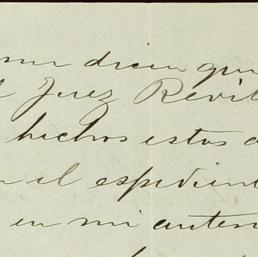 me dicen que
l Juez Revil
hechos estos a
n el espedient
en mi anteri